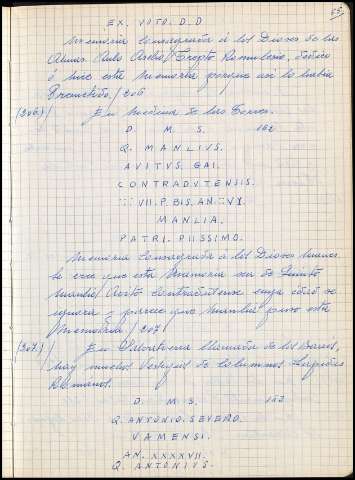 55.
EX. VOTO. D.D
Memoria Consagrada á los Dioses de las
Almas. Aulo Aselio Crepto Romuleno, dedico
é hizo esta memoria porque asi lo habia
Prometido. /206
/206)/ En Medina de las Torres.
D. M. S. 152
Q. MANLIVS.
AVITVS. GAI.
CONTRADVTENSIS.
VII. P. BIS. AN. VI.
MANLIA.
PATRI. PIISSIMO.
Memoria Consagrada á los Dioses manes
Se cree que esta memoria sea de Quinto
Manlio Avito Contradutense cuya edad se
ygnora y parece que Manlia puso esta
Memoria. /207
/207)/ En Valvatierra llamada de los Barros,
hay muchos Vestigios de Columnas Sepulcros
Romanos.
D. M. S. 153
Q. ANTONIO. SEVERO.
VAMENSI.
AN. XXXXVII.
Q. ANTONIVS.